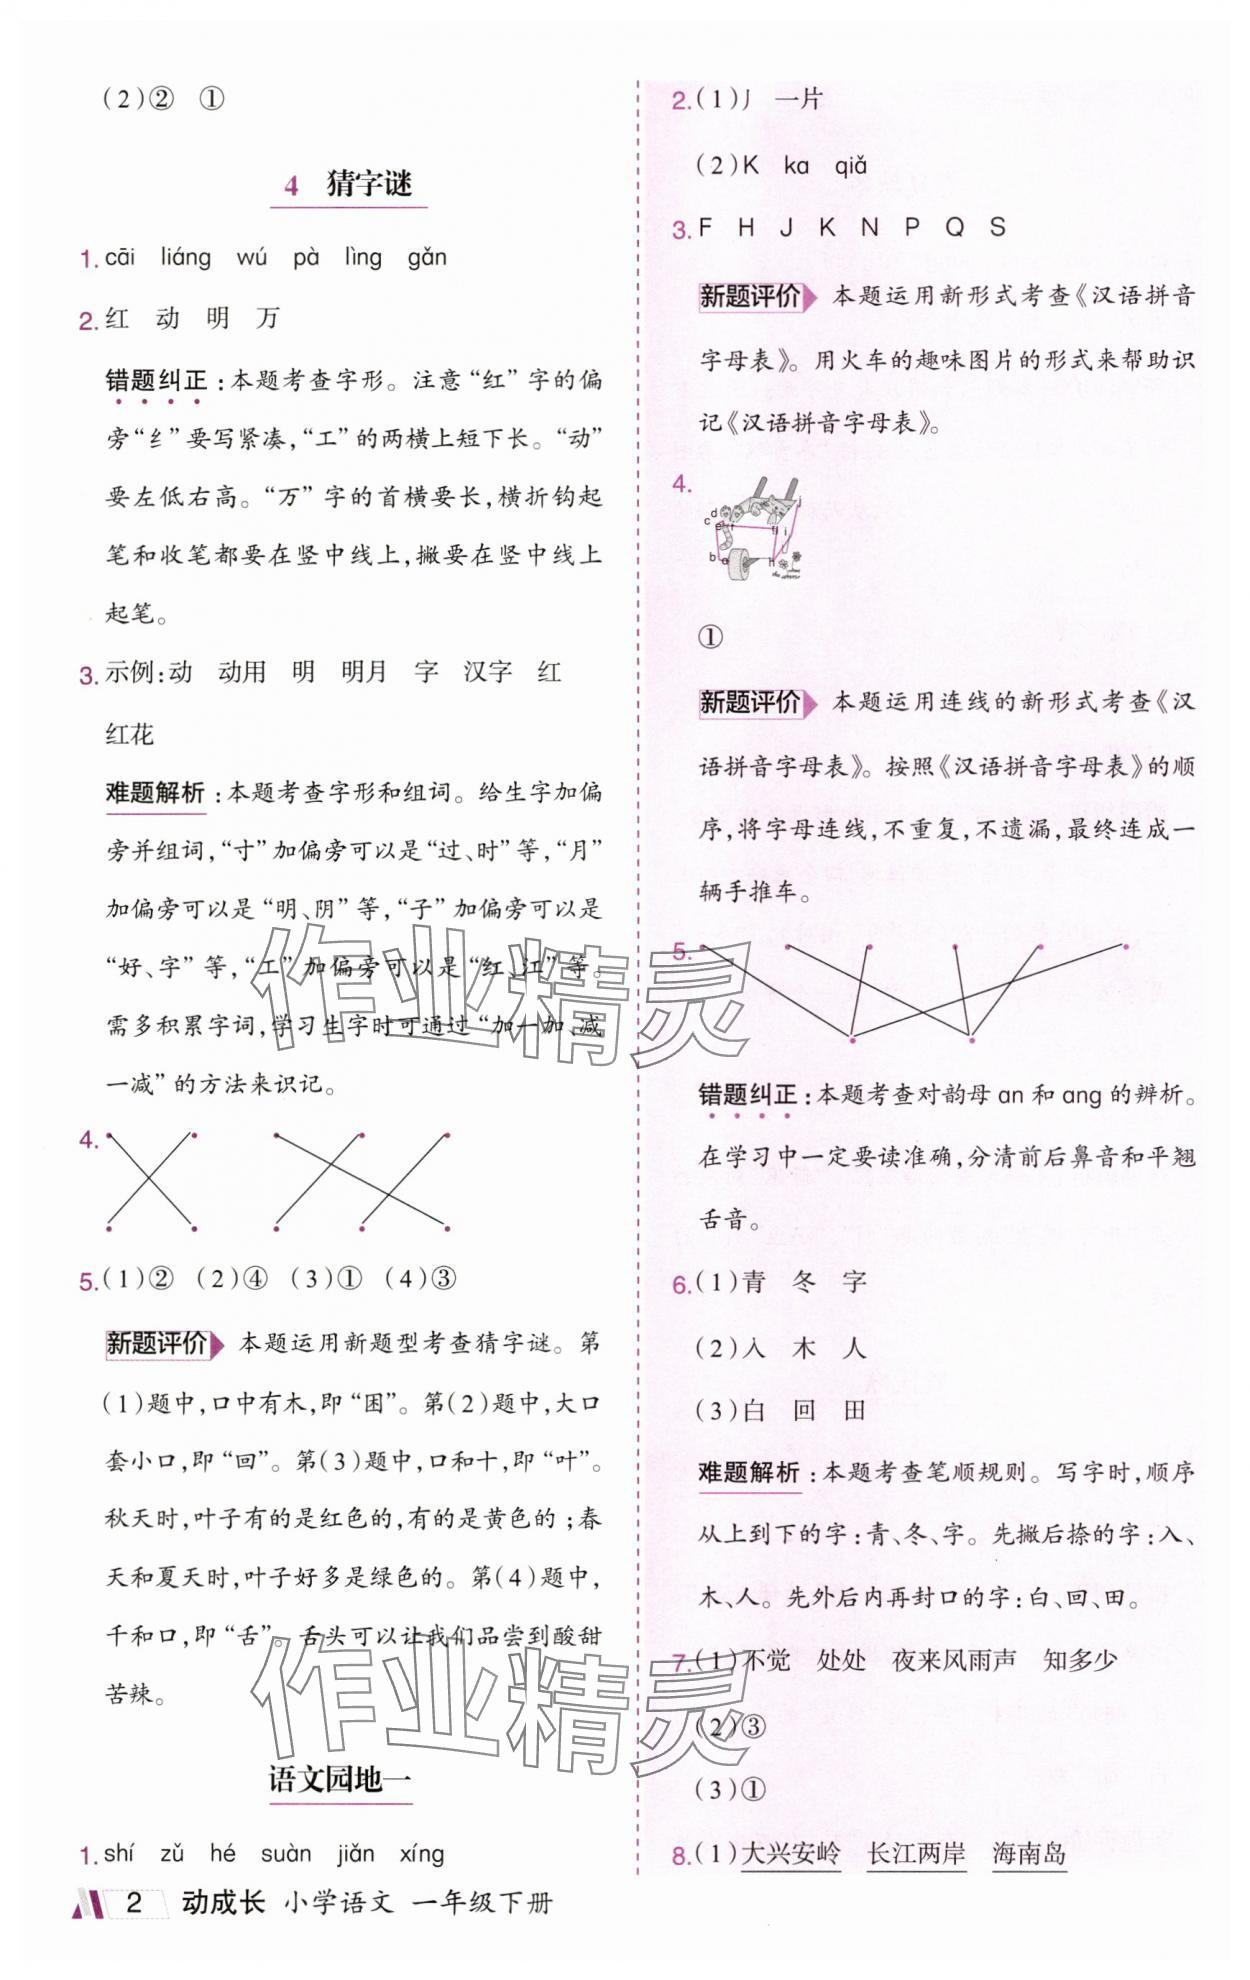 (2)② ①
4 猜字谜
1. cāi liáng wú pà lìng gǎn
2. 红 动 明 万
错题纠正:本题考查字形。注意“红”字的偏
旁“纟”要写紧凑,“工”的两横上短下长。“动”
要左低右高。“万”字的首横要长,横折钩起
笔和收笔都要在竖中线上,撇要在竖中线上
起笔。
3. 示例:动 动用 明 明月 字 汉字 红
红花
难题解析:本题考查字形和组词。给生字加偏
旁并组词,“寸”加偏旁可以是“过、时”等,“月”
加偏旁可以是“明、阴”等,“子”加偏旁可以是
“好、字”等,“工”加偏旁可以是“红、江”等。
需多积累字词,学习生字时可通过“加一加、减
一减”的方法来识记。
4.
5. (1)② (2)④ (3)① (4)③
新题评价 本题运用新题型考查猜字谜。第
(1)题中,口中有木,即“困”。第(2)题中,大口
套小口,即“回”。第(3)题中,口和十,即“叶”。
秋天时,叶子有的是红色的,有的是黄色的;春
天和夏天时,叶子好多是绿色的。第(4)题中,
千和口,即“舌”。舌头可以让我们品尝到酸甜
苦辣。
语文园地一
1. shí zǔ hé suàn jiǎn xíng
2. (1)丿 一片
(2)K ka qiǎ
3. F H J K N P Q S
新题评价 本题运用新形式考查《汉语拼音
字母表》。用火车的趣味图片的形式来帮助识
记《汉语拼音字母表》。
4.
①
新题评价 本题运用连线的新形式考查《汉
语拼音字母表》。按照《汉语拼音字母表》的顺
序,将字母连线,不重复,不遗漏,最终连成一
辆手推车。
5.
错题纠正:本题考查对韵母 an 和 ang 的辨析。
在学习中一定要读准确,分清前后鼻音和平翘
舌音。
6. (1)青 冬 字
(2)入 木 人
(3)白 回 田
难题解析:本题考查笔顺规则。写字时,顺序
从上到下的字:青、冬、字。先撇后捺的字:入、
木、人。先外后内再封口的字:白、回、田。
7. (1)不觉 处处 夜来风雨声 知多少
(2)③
(3)①
8. (1)大兴安岭 长江两岸 海南岛
作业精灵
作业精灵
2 动成长 小学语文 一年级下册